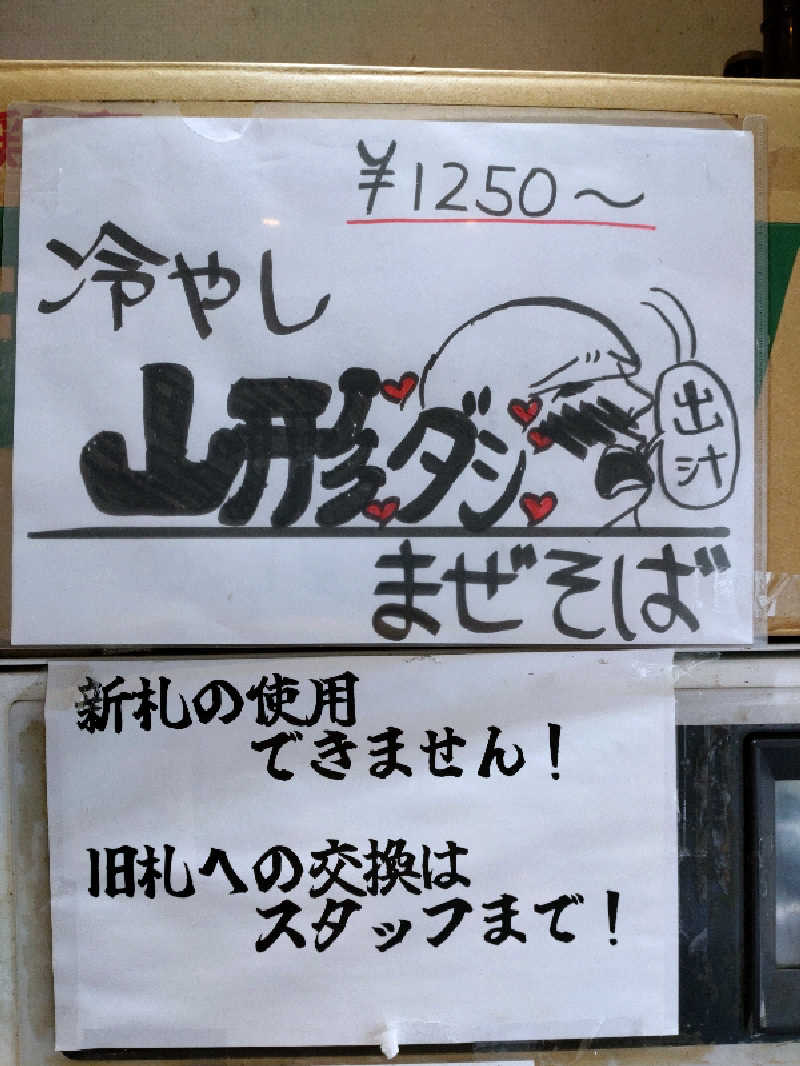 ¥1250〜
冷やし
山形ダシ
出汁
まぜそば
新札の使用
できません!
旧札への交換は
スタッフまで!